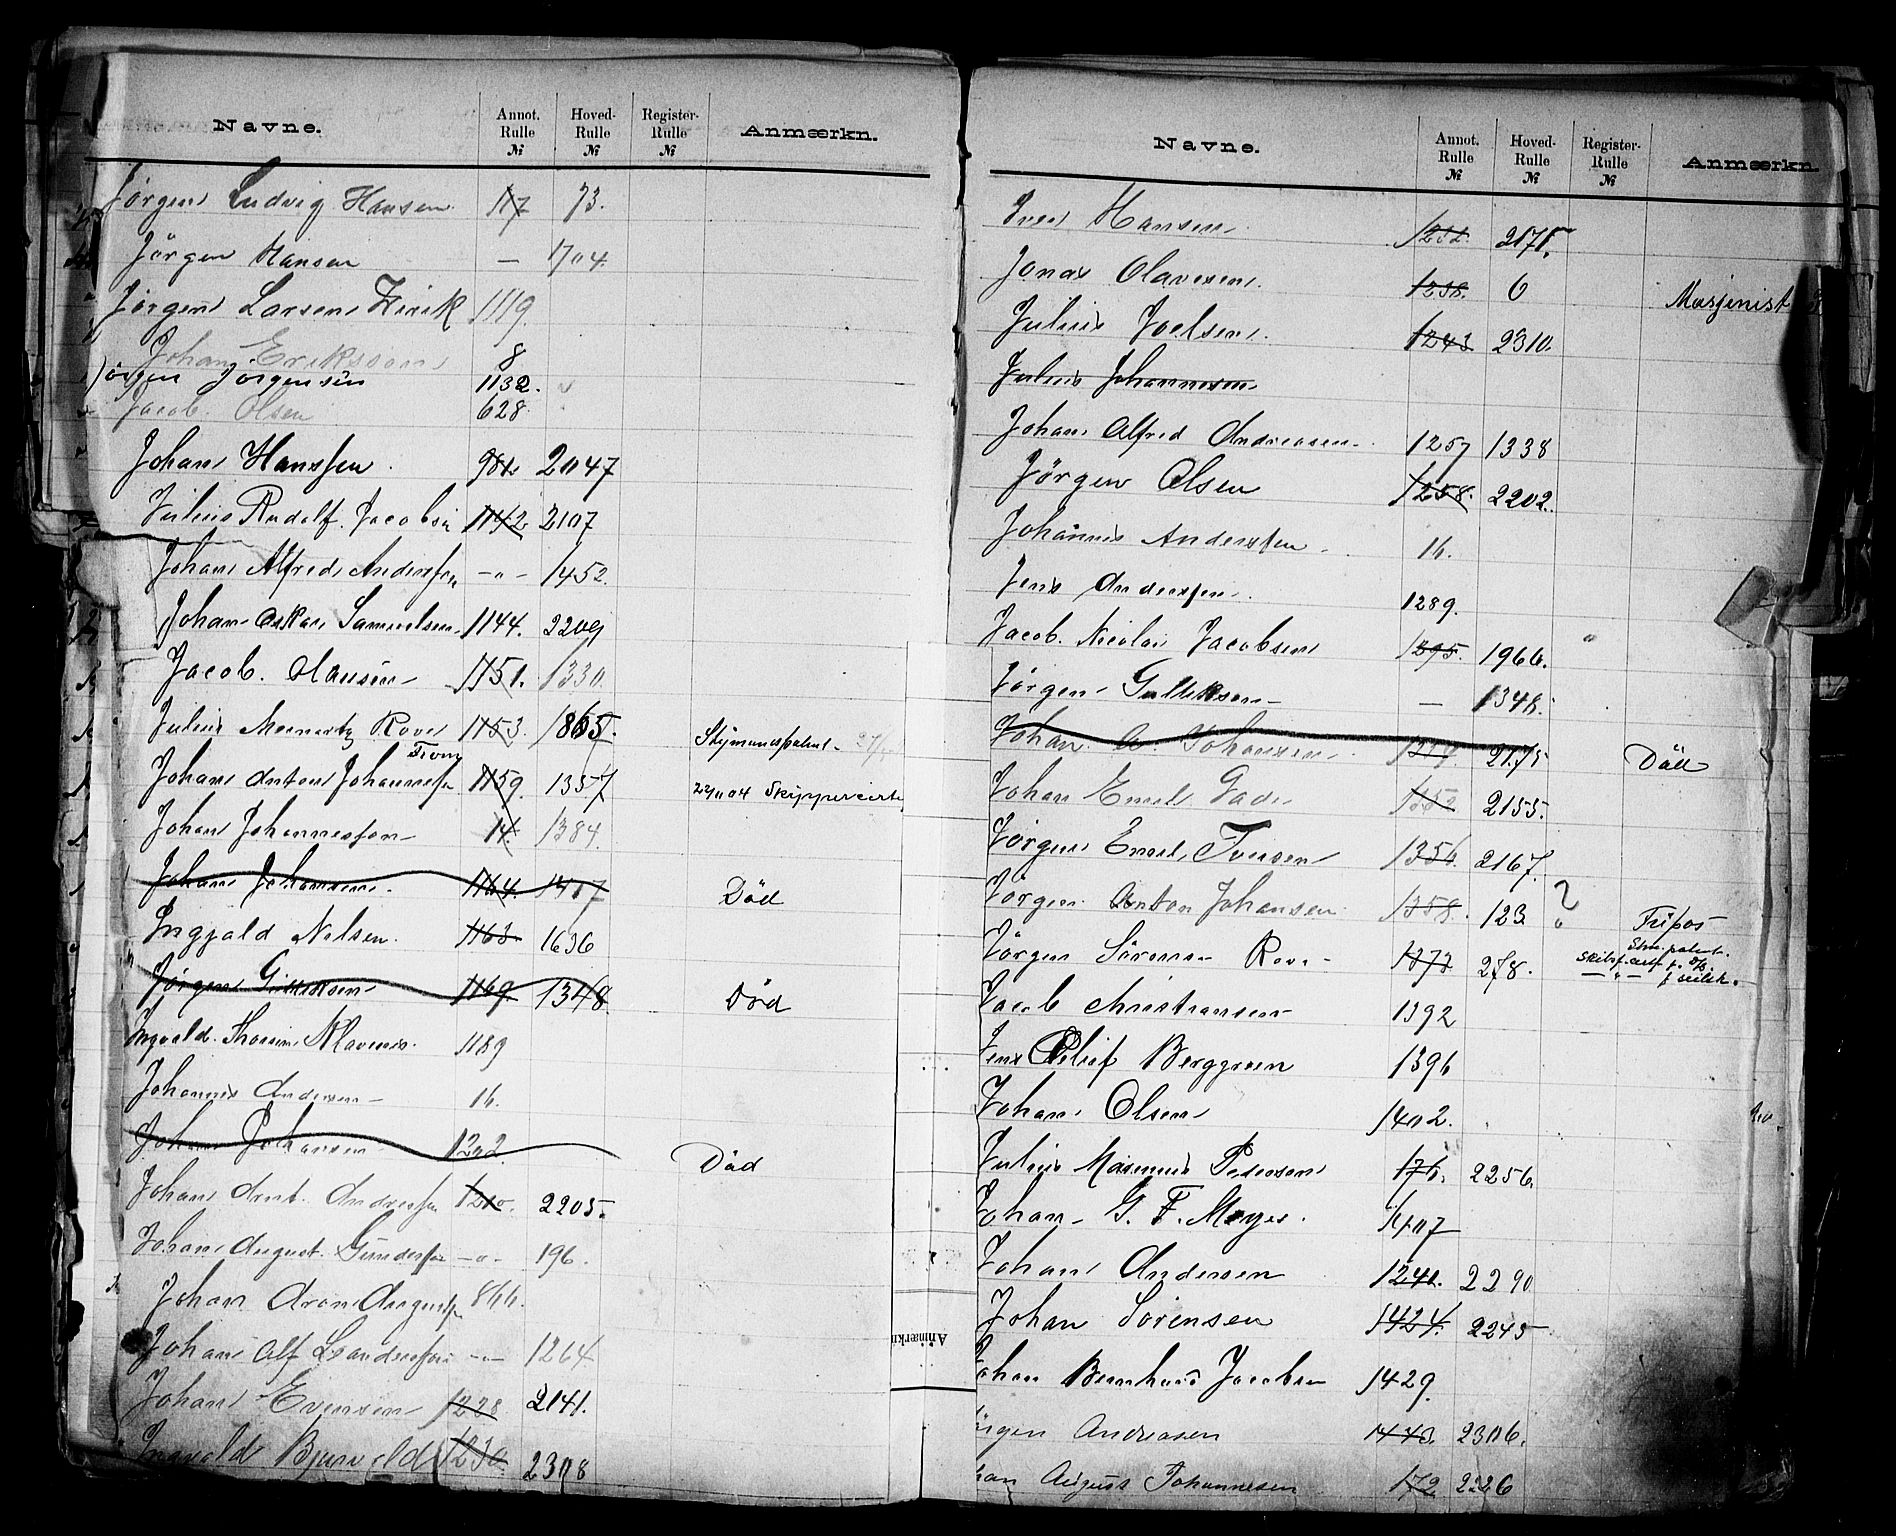 Navne. Annot. Rulle № Hoved- Rulle № Register- Rulle № Anmærkn.
Jörgen Ludvig Hansen 117 73.
Jörgen Hansen — 1704.
Jörgen Larsen 1119.
Johan Eriksson 8
Jörgen Jörgensen 1132.
Jacob. Olsen 628
Johan Hanssen. 981 2047
Julius Rudolf. Jacobsen 1142. 2107
Johan Alfred Anderssen -"- 1452.
Johan Oskar Samuelsen. 1144. 2209
Jacob. Hansen 1151. 1330.
Julius Rove 1153. 1865.
Johan Anton Johannessen 1159. 1357 Skippercert
Johan Johannesson 14. 1384.
Johan Johansen. 1164. 1407 Död
Ingvald Nilsen. 1163. 1636
Jörgen Gulleksen 1169. 1348. Död
Ingvald. 1189
Johannes Andersen 16.
Johan Johansen 1202. Död
Johan Arnt. Andersen 1210. 2205.
Johan August. Gundersen -"- 196.
Johan Aron Augusts 866.
Johan Alf -"- 1264
Johan Evensen 1228. 2141.
Ingvald 1230 2308
Navne. Annot. Rulle № Hoved- Rulle № Register- Rulle № Anmærkn.
Iver Hansen. 1232. 2171.
Jonas Olavesen. 1238. 6 Masjenist
Julius Joelsen. 1243 2310.
Julius Johannesen
Johan Alfred Andreasen. 1257 1338
Jörgen Olsen 1258. 2202.
Johannes Anderssen. 16.
Jens Anderssen. 1289.
Jacob. Nicolai Jacobsen 1295. 1966. "
Jörgen Gulleksen — 1348.
Johan A. Johansen. 2175 Död
Johan Emil Gade 1352 2155.
Jörgen Emil Iversen 1356. 2167.
Jörgen Anton Johansen 1358. 123 ? "
Jörgen Sörensen Rove 1373 278. Stm. patent.
Jacob Christiansen 1392
Jens Berggreen 1396
Johan Olsen 1402.
Julius Rasmus Pedersen 176. 2256.
Johan G. F. Meyer. 1407
Johan Andersen 1241. 2290
Johan Sörensen 1424. 2245
Johan Bernhard Jacobsen 1429.
Jörgen Andreasen 1443. 2306.
Johan August Johannesen 172 2226
Anmærkn